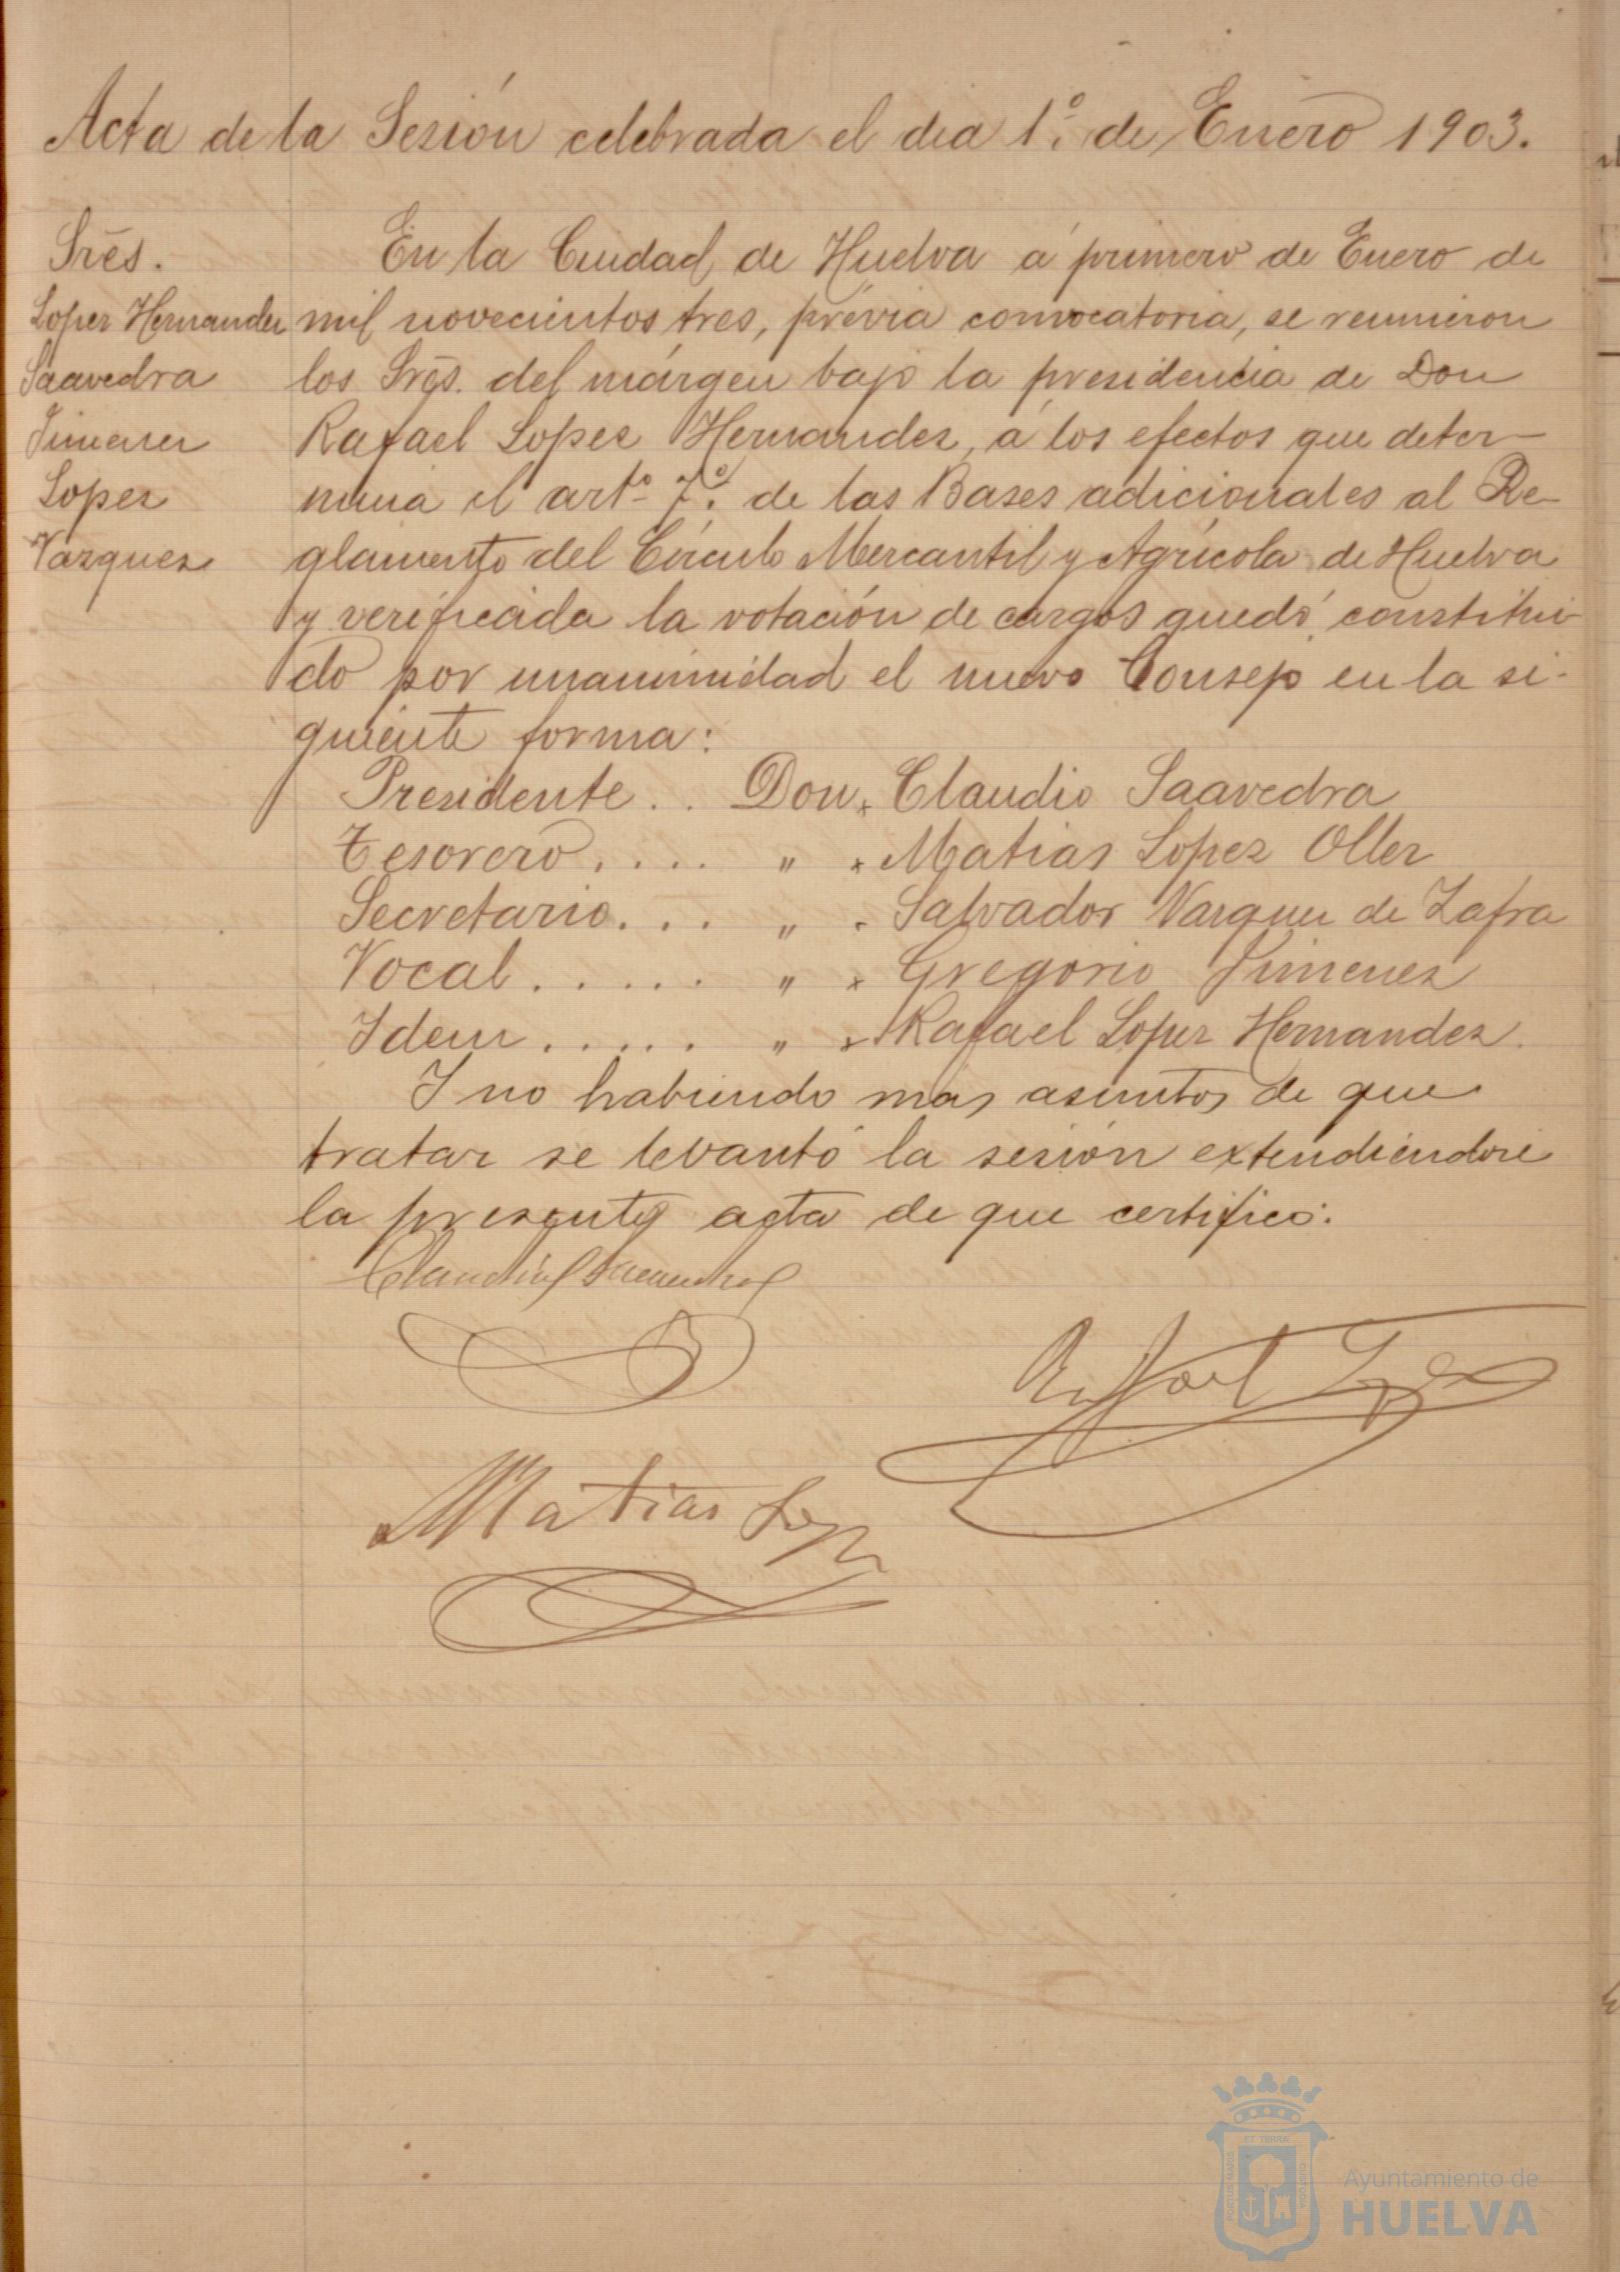 Acta de la Sesión celebrada el dia 1.º de Enero 1903.
Sres.
Lopez Hernandez
Saavedra
Jimenez
Lopez
Vazquez
En la Ciudad de Huelva á primero de Enero de
mil novecientos tres, prévia convocatoria, se reunieron
los Sres. del márgen bajo la presidencia de Don
Rafael Lopez Hernandez, á los efectos que deter-
mina el artº 7.º de las Bases adicionales al Re-
glamento del Círculo Mercantil y Agrícola de Huelva
y verificada la votación de cargos quedó constitui-
do por unanimidad el nuevo Consejo en la si-
guiente forma:
Presidente . . Don Claudio Saavedra
Tesorero . . . . " Matias Lopez Oller
Secretario. . . " Salvador Vazquez de Zafra
Vocal . . . . . " Gregorio Jimenez
Idem . . . . . " Rafael Lopez Hernandez.
Y no habiendo mas asuntos de que
tratar se levantó la sesión extendiéndose
la presente acta de que certifico.
Claudio Saavedra
Rafael Lopez
Matias Lopez
PORTUS MARIS
ET TERRAE
CUSTODIA
Ayuntamiento de
HUELVA